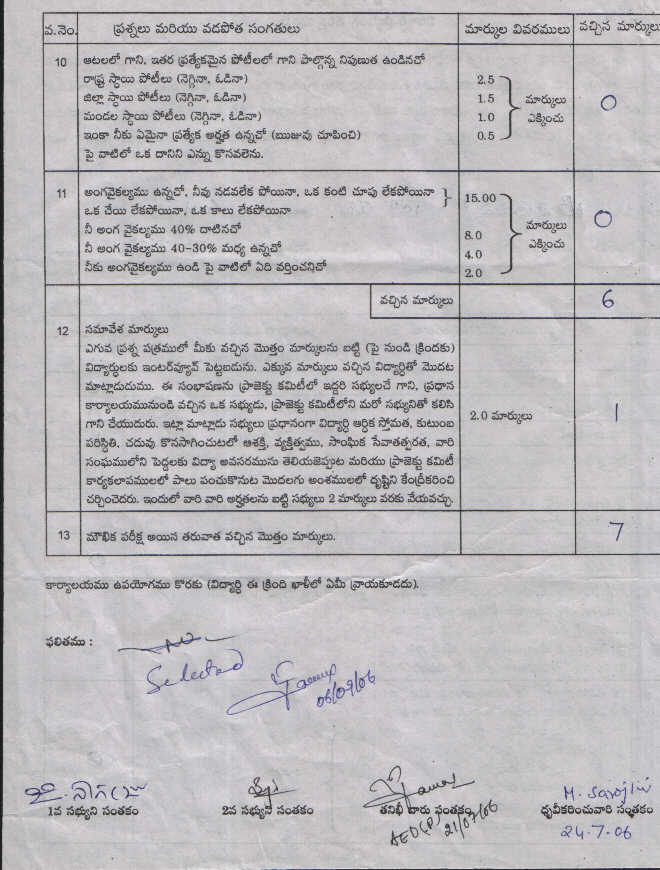 వ.నెం. ప్రశ్నలు మరియు వడపోత సంగతులు మార్కుల వివరములు వచ్చిన మార్కులు
10 ఆటలలో గాని, ఇతర ప్రత్యేకమైన పోటీలలో గాని పాల్గొన్న నిపుణుత ఉండినచో
రాష్ట్ర స్థాయి పోటీలు (నెగ్గినా, ఓడినా) 2.5
జిల్లా స్థాయి పోటీలు (నెగ్గినా, ఓడినా) 1.5 మార్కులు 0
మండల స్థాయి పోటీలు (నెగ్గినా, ఓడినా) 1.0 ఎక్కించు
ఇంకా నీకు ఏమైనా ప్రత్యేక అర్హత ఉన్నచో (ఋజువు చూపించి) 0.5
పై వాటిలో ఒక దానిని ఎన్ను కొనవలెను.
11 అంగవైకల్యము ఉన్నచో, నీవు నడవలేక పోయినా, ఒక కంటి చూపు లేకపోయినా } 15.00
ఒక చేయి లేకపోయినా, ఒక కాలు లేకపోయినా
నీ అంగ వైకల్యము 40% దాటినచో 8.0 మార్కులు 0
నీ అంగ వైకల్యము 40-30% మధ్య ఉన్నచో 4.0 ఎక్కించు
నీకు అంగవైకల్యము ఉండి పై వాటిలో ఏది వర్తించనిచో 2.0
వచ్చిన మార్కులు 6
12 సమావేశ మార్కులు
ఎగువ ప్రశ్న పత్రములో మీకు వచ్చిన మొత్తం మార్కులను బట్టి (పై నుండి క్రిందకు)
విద్యార్థులకు ఇంటర్వ్యూవ్ పెట్టబడును. ఎక్కువ మార్కులు వచ్చిన విద్యార్థితో మొదట
మాట్లాడుదుము. ఈ సంభాషణను ప్రాజెక్టు కమిటీలో ఇద్దరి సభ్యులచే గాని, ప్రధాన
కార్యాలయమునుండి వచ్చిన ఒక సభ్యుడు, ప్రాజెక్టు కమిటీలోని మరో సభ్యునితో కలిసి
గాని చేయుదురు. ఇట్లా మాట్లాడు సభ్యులు ప్రధానంగా విద్యార్థి ఆర్థిక స్తోమత, కుటుంబ 2.0 మార్కులు 1
పరిస్థితి, చదువు కొనసాగించుటలో ఆశక్తి, వ్యక్తిత్వము, సాంఘిక సేవాతత్పరత, వారి
సంఘములోని పెద్దలకు విద్యా అవసరమును తెలియజెప్పుట మరియు ప్రాజెక్టు కమిటీ
కార్యకలాపములలో పాలు పంచుకొనుట మొదలగు అంశములలో దృష్టిని కేంద్రీకరించి
చర్చించెదరు. ఇందులో వారి వారి అర్హతలను బట్టి సభ్యులు 2 మార్కులు వరకు వేయవచ్చు.
13 మౌఖిక పరీక్ష అయిన తరువాత వచ్చిన మొత్తం మార్కులు. 7
కార్యాలయము ఉపయోగము కొరకు (విద్యార్థి ఈ క్రింది ఖాళీలో ఏమీ వ్రాయకూడదు).
ఫలితము :
Selected
06/09/06
M. Sarojini
1వ సభ్యుని సంతకం 2వ సభ్యుని సంతకం తనిఖీ వారు సంతకం ధృవీకరించువారి సంతకం
AEO(P) 21/07/06 24.7.06